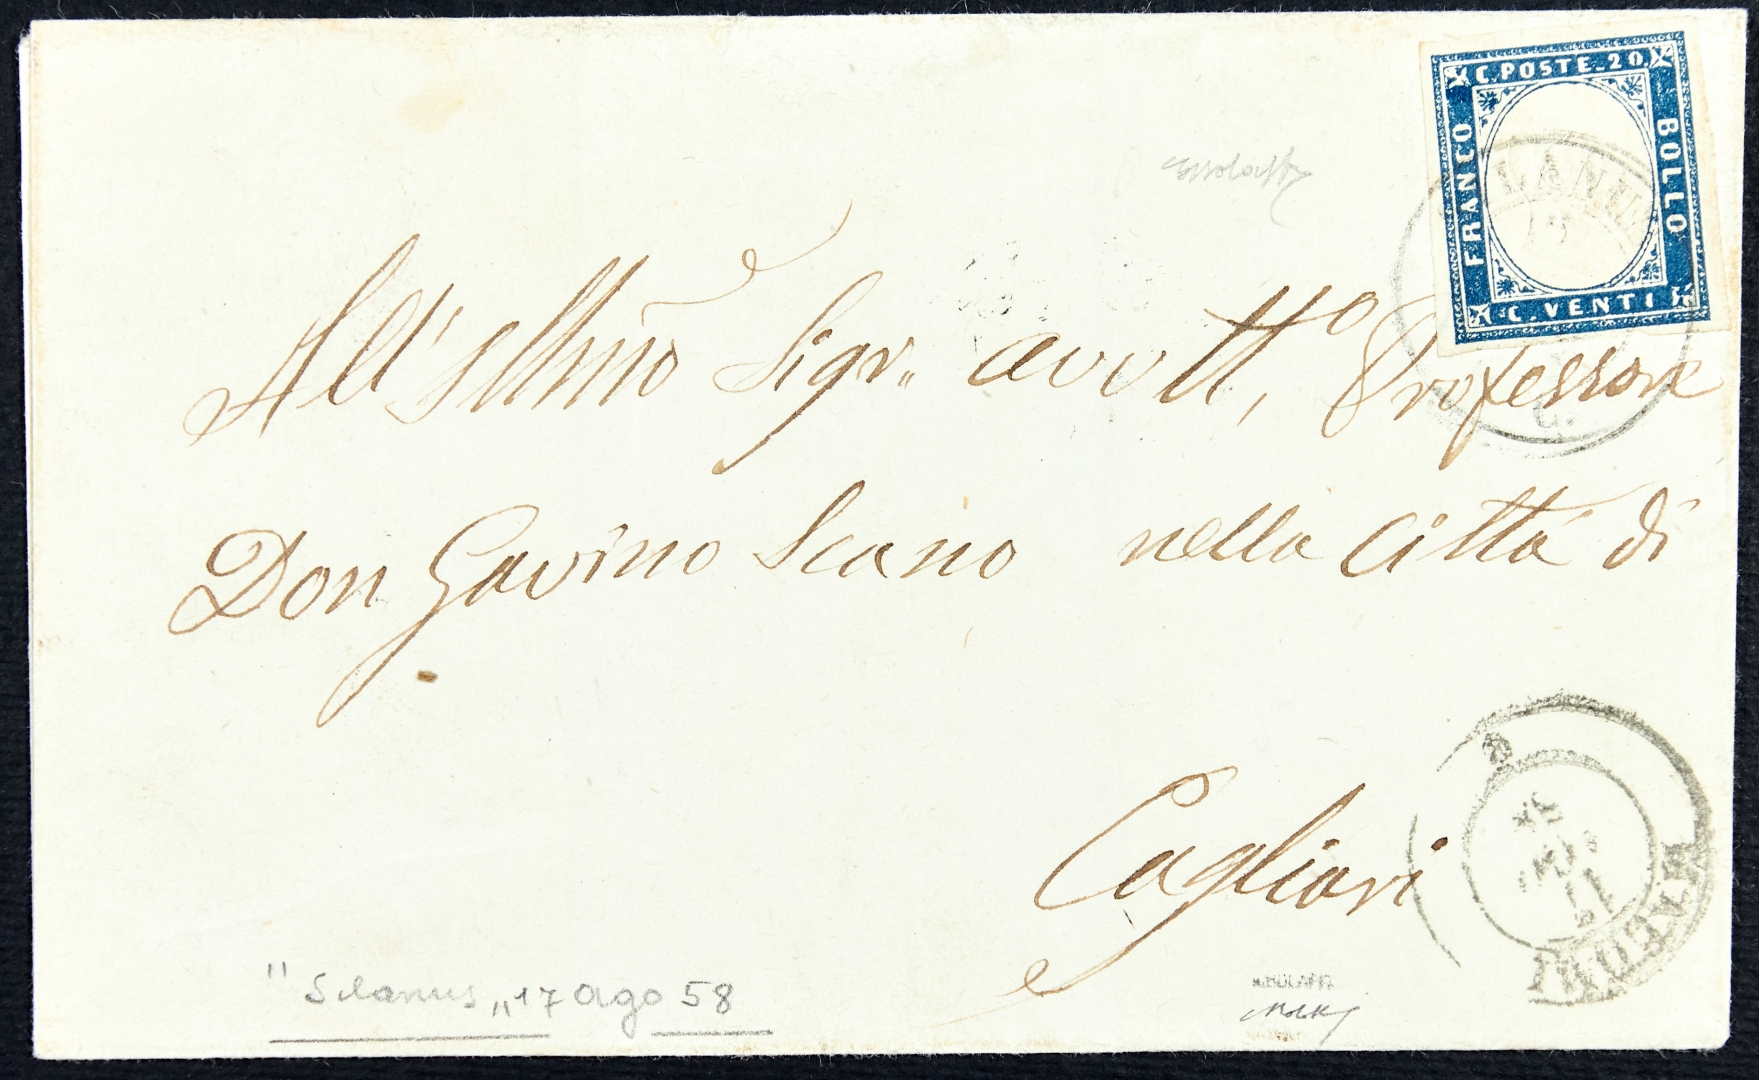 C. POSTE. 20.
FRANCO
BOLLO
C. VENTI
All' Illmo Sigr. avvtto, Professore
Don Gavino Scano nella città di
Cagliari
17
"Silanus" 17 ago 58